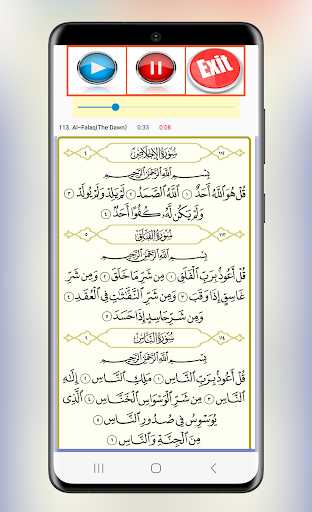 Exit
113. Al-Falaq(The Dawn) 0:33 0:08
٤ سُورَةُ الإِخْلَاصِ ١١٢
بِسْمِ اللَّهِ الرَّحْمَٰنِ الرَّحِيمِ
قُلْ هُوَ اللَّهُ أَحَدٌ ١ اللَّهُ الصَّمَدُ ٢ لَمْ يَلِدْ وَلَمْ يُولَدْ ٣
وَلَمْ يَكُن لَّهُ كُفُوًا أَحَدٌ ٤
٥ سُورَةُ الفَلَقِ ١١٣
بِسْمِ اللَّهِ الرَّحْمَٰنِ الرَّحِيمِ
قُلْ أَعُوذُ بِرَبِّ الْفَلَقِ ١ مِن شَرِّ مَا خَلَقَ ٢ وَمِن شَرِّ
غَاسِقٍ إِذَا وَقَبَ ٣ وَمِن شَرِّ النَّفَّاثَاتِ فِي الْعُقَدِ ٤
وَمِن شَرِّ حَاسِدٍ إِذَا حَسَدَ ٥
٦ سُورَةُ النَّاسِ ١١٤
بِسْمِ اللَّهِ الرَّحْمَٰنِ الرَّحِيمِ
قُلْ أَعُوذُ بِرَبِّ النَّاسِ ١ مَلِكِ النَّاسِ ٢ إِلَٰهِ
النَّاسِ ٣ مِن شَرِّ الْوَسْوَاسِ الْخَنَّاسِ ٤ الَّذِي
يُوَسْوِسُ فِي صُدُورِ النَّاسِ ٥
مِنَ الْجِنَّةِ وَالنَّاسِ ٦